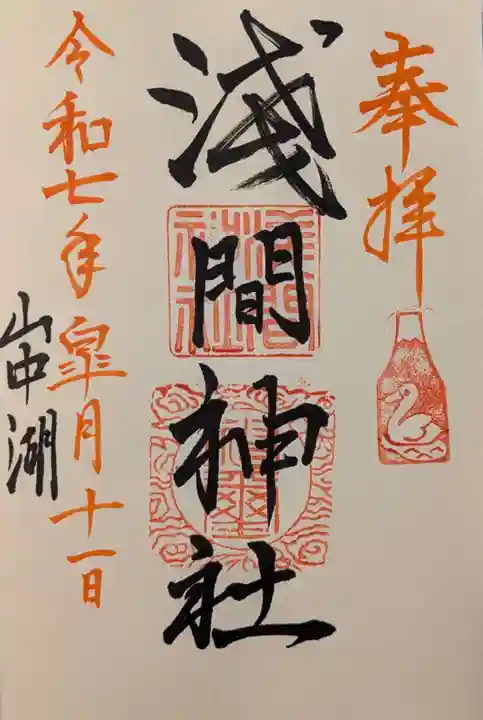 奉拝
浅間神社
令和七年皐月十一日
山中湖